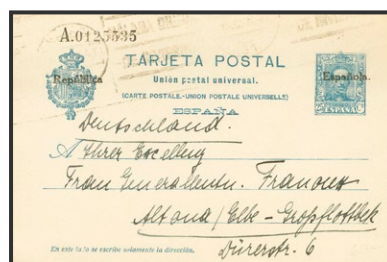 A.0125535
TARJETA POSTAL
República
Española.
Unión postal universal.
(CARTE POSTALE.-UNION POSTALE UNIVERSELLE)
ESPAÑA
ESPAÑA
Deutschland.
Ihrer Excellenz
Frau Generalleutn.
Altona/Elbe - Gropflottbek
Dürerstr. 6
En este lado se escribe solamente la dirección.